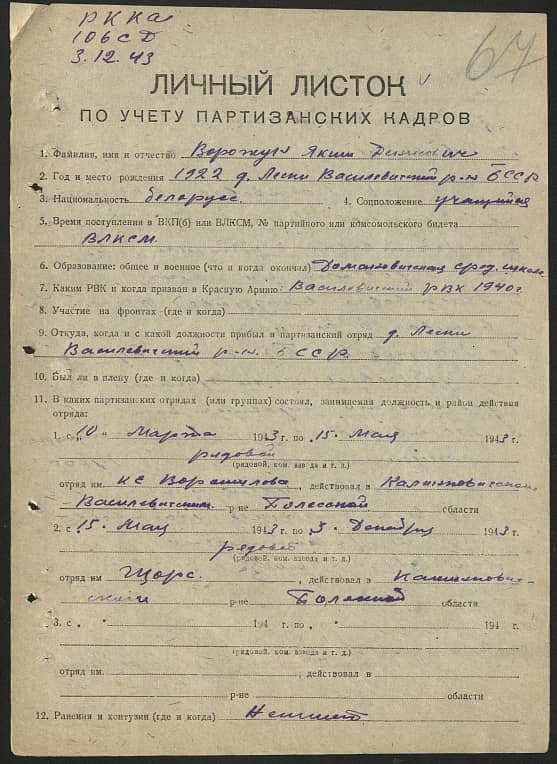 РККА
106 СД
3.12.43
67
ЛИЧНЫЙ ЛИСТОК
ПО УЧЕТУ ПАРТИЗАНСКИХ КАДРОВ
1. Фамилия, имя и отчество Ворожун Яким
2. Год и место рождения 1922 д. Лески Василевичский р-н БССР
3. Национальность белорусс. 4. Соцположение учащийся
5. Время поступления в ВКП(б) или ВЛКСМ, № партийного или комсомольского билета
ВЛКСМ.
6. Образование: общее и военное (что и когда окончил) Домановичская сред. школа
7. Каким РВК и когда призван в Красную Армию: Василевичский РВК 1940 г.
8. Участие на фронтах (где и когда)
9. Откуда, когда и с какой должности прибыл в партизанский отряд д. Лески
Василевичский р-н. БССР.
10. Был ли в плену (где и когда)
11. В каких партизанских отрядах (или группах) состоял, занимаемая должность и район действия
отряда:
1. с „10„ Марта 1943 г. по 15. Мая 1943 г.
рядовой
(рядовой, ком. взвода и т. д.)
отряд им. Ворошилова, действовал в Калинковичском
Василевичским р-не Полесской области
2. с 15. Мая 1943 г. по 3. Декабря 1943 г.
рядовой
(рядовой, ком. взвода и т. д.)
отряд им Щорс., действовал в Калинкович-
ском р-не Полесской области
3. с „ " 194 г. по " 194 г.
(рядовой, ком. взвода и т. д.)
отряд им., действовал в
р-не области
12. Ранения и контузии (где и когда)